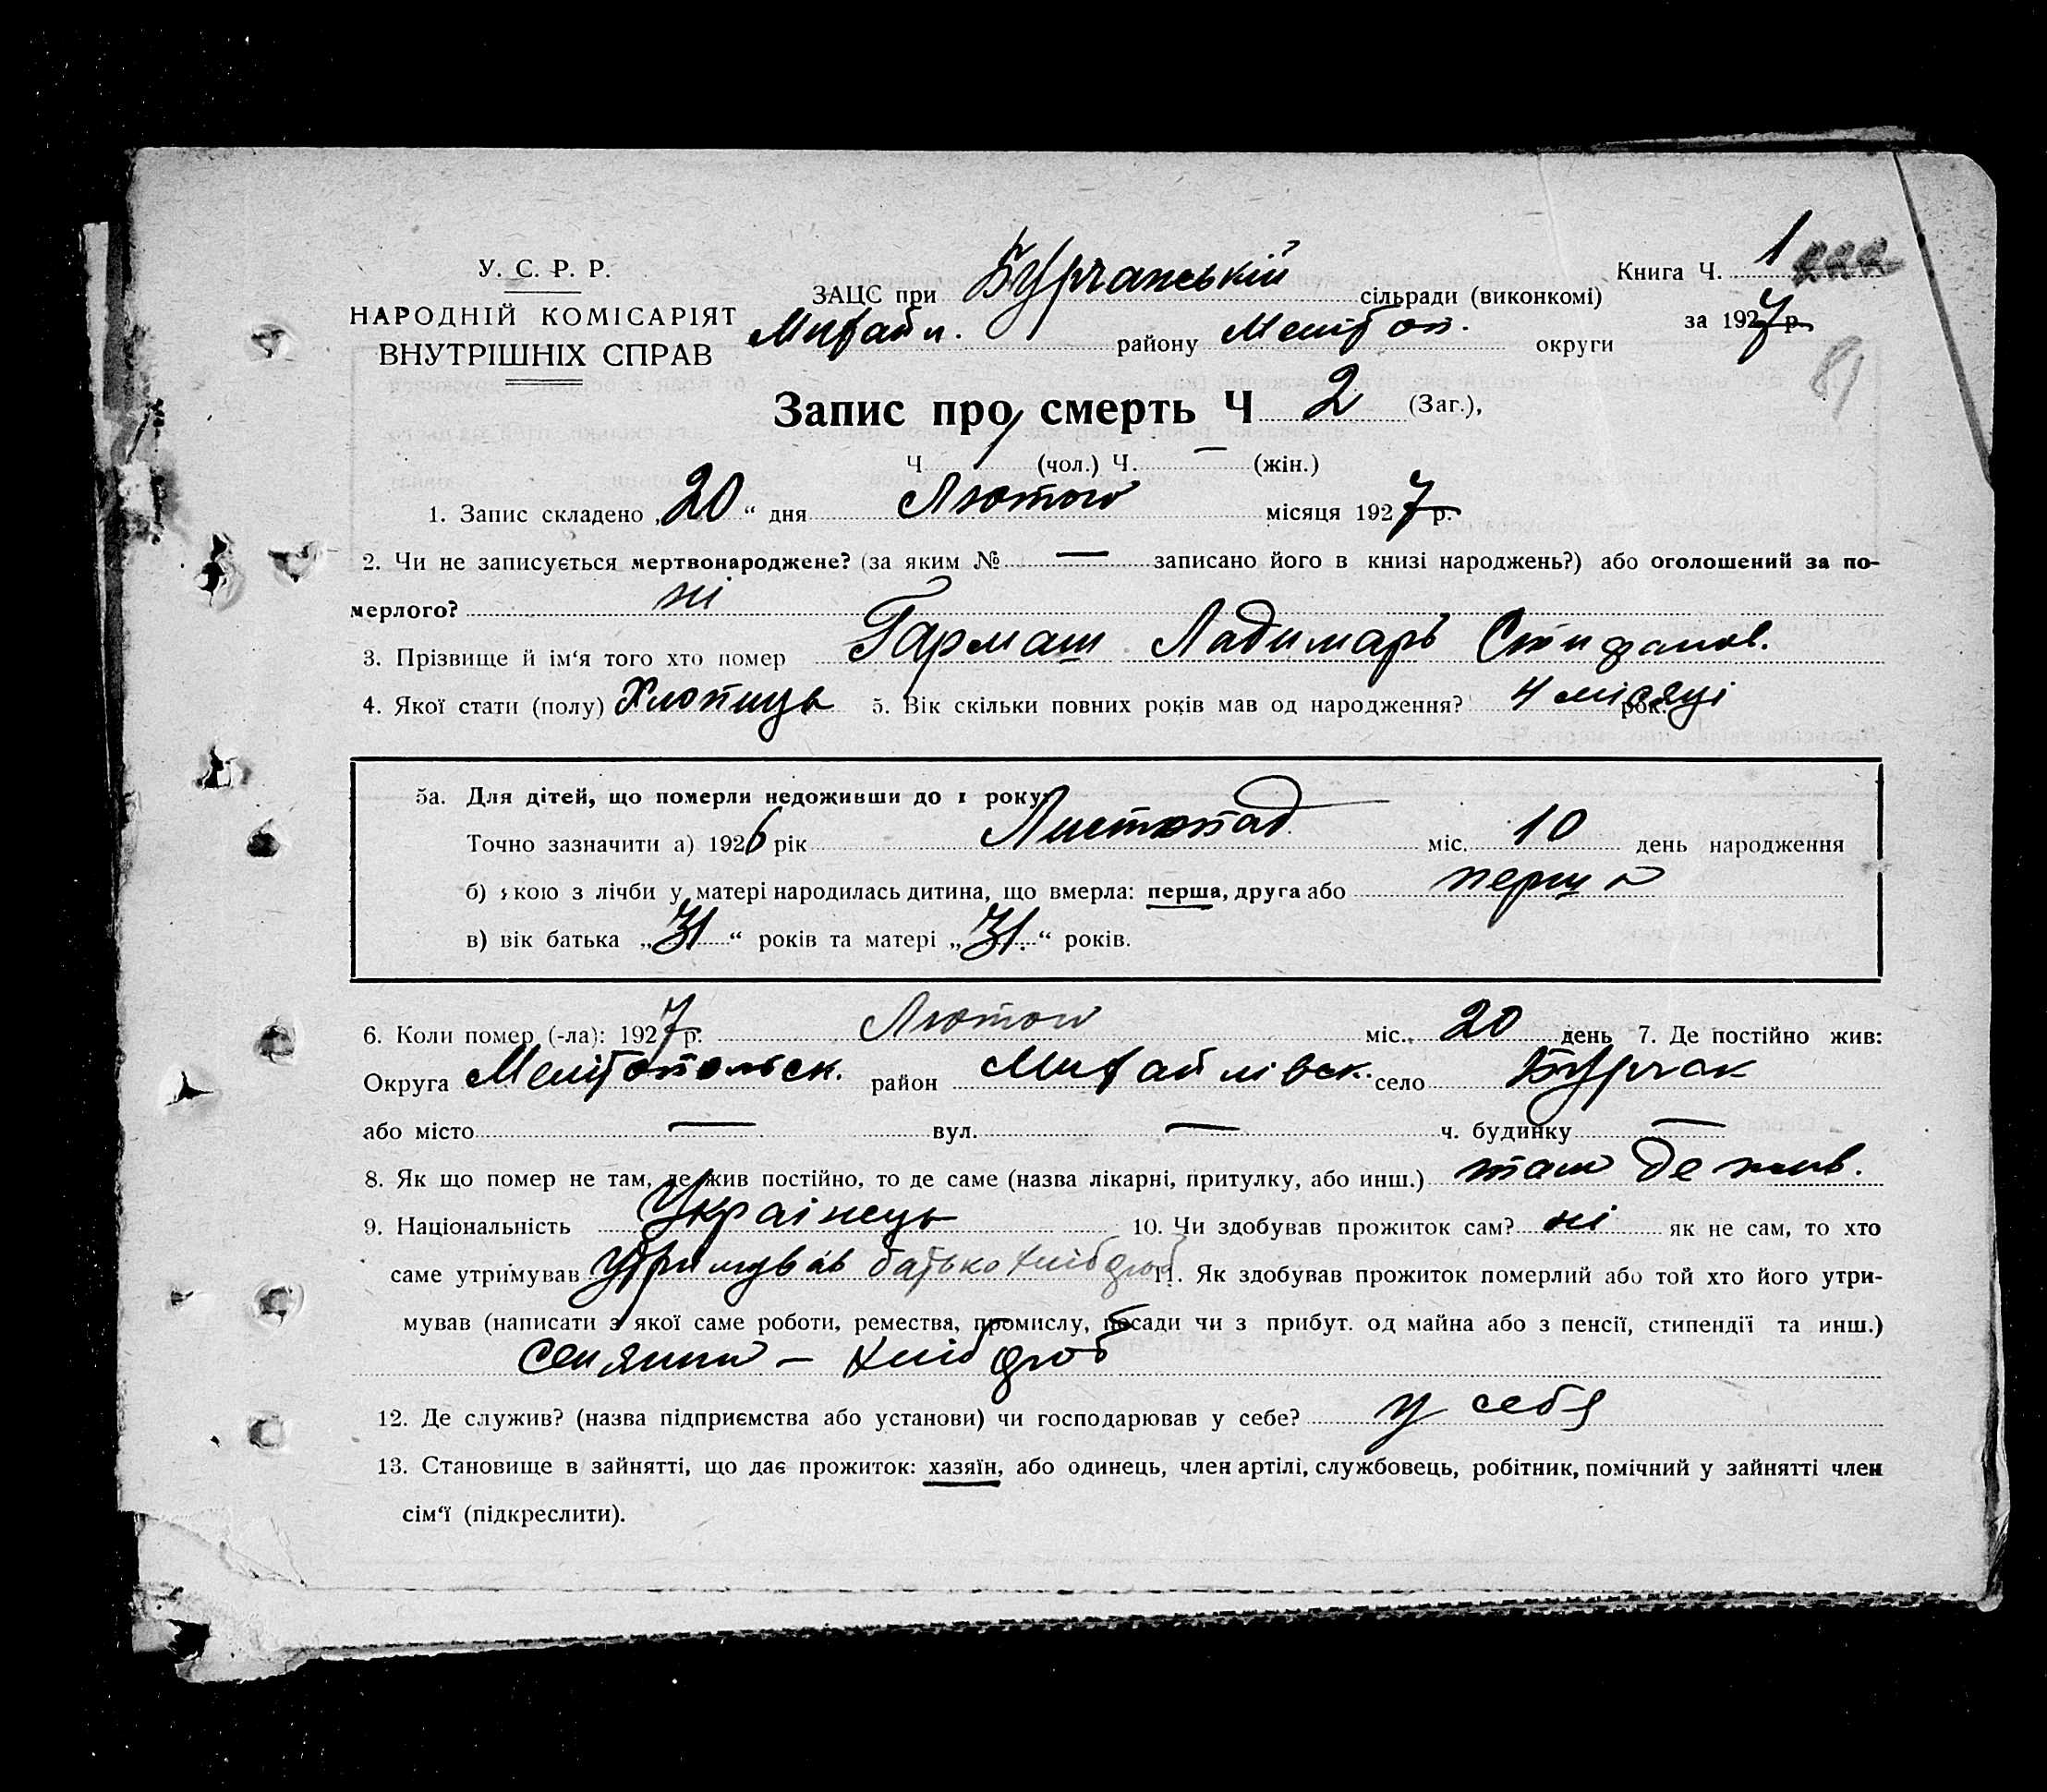 У. С. Р. Р.
НАРОДНІЙ КОМІСАРІЯТ
ВНУТРІШНІХ СПРАВ
ЗАЦС при Бурчанській сільради (виконкомі)
Михайл. району Мелітоп. округи
Книга Ч. 1 222
за 1927 р.
81
Запис про смерть Ч 2 (Заг.),
Ч 1 (чол.) Ч. — (жін.)
1. Запис складено „20“ дня Лютого місяця 1927 р.
2. Чи не записується мертвонароджене? (за яким № — записано його в книзі народжень?) або оголошений за по-
мерлого? ні
3. Прізвище й ім‘я того хто помер Гармаш Ладимарь Стифанов.
4. Якої стати (полу) Хлопиць 5. Вік скільки повних років мав од народження? 4 місяці рок.
5а. Для дітей, що померли недоживши до 1 року:
Точно зазначити а) 1926 рік Листопад міс. 10 день народження
б) якою з лічби у матері народилась дитина, що вмерла: перша, друга або перша
в) вік батька „31“ років та матері „31.“ років.
6. Коли помер (-ла): 1927 р. Лютого міс. 20 день 7. Де постійно жив:
Округа Мелітопольск. район Михайлівск. село Бурчак
або місто — вул. — ч. будинку —
8. Як що помер не там, де жив постійно, то де саме (назва лікарні, притулку, або инш.) там де жив.
9. Національність Українець 10. Чи здобував прожиток сам? ні як не сам, то хто
саме утримував Утримував батько хлібороб 11. Як здобував прожиток померлий або той хто його утри-
мував (написати з якої саме роботи, ремества, промислу, посади чи з прибут. од майна або з пенсії, стипендії та инш.)
Селянин – хлібороб
12. Де служив? (назва підприємства або установи) чи господарював у себе? у себя
13. Становище в зайнятті, що дає прожиток: хазяїн, або одинець, член артілі, службовець, робітник, помічний у зайнятті член
сім‘ї (підкреслити).